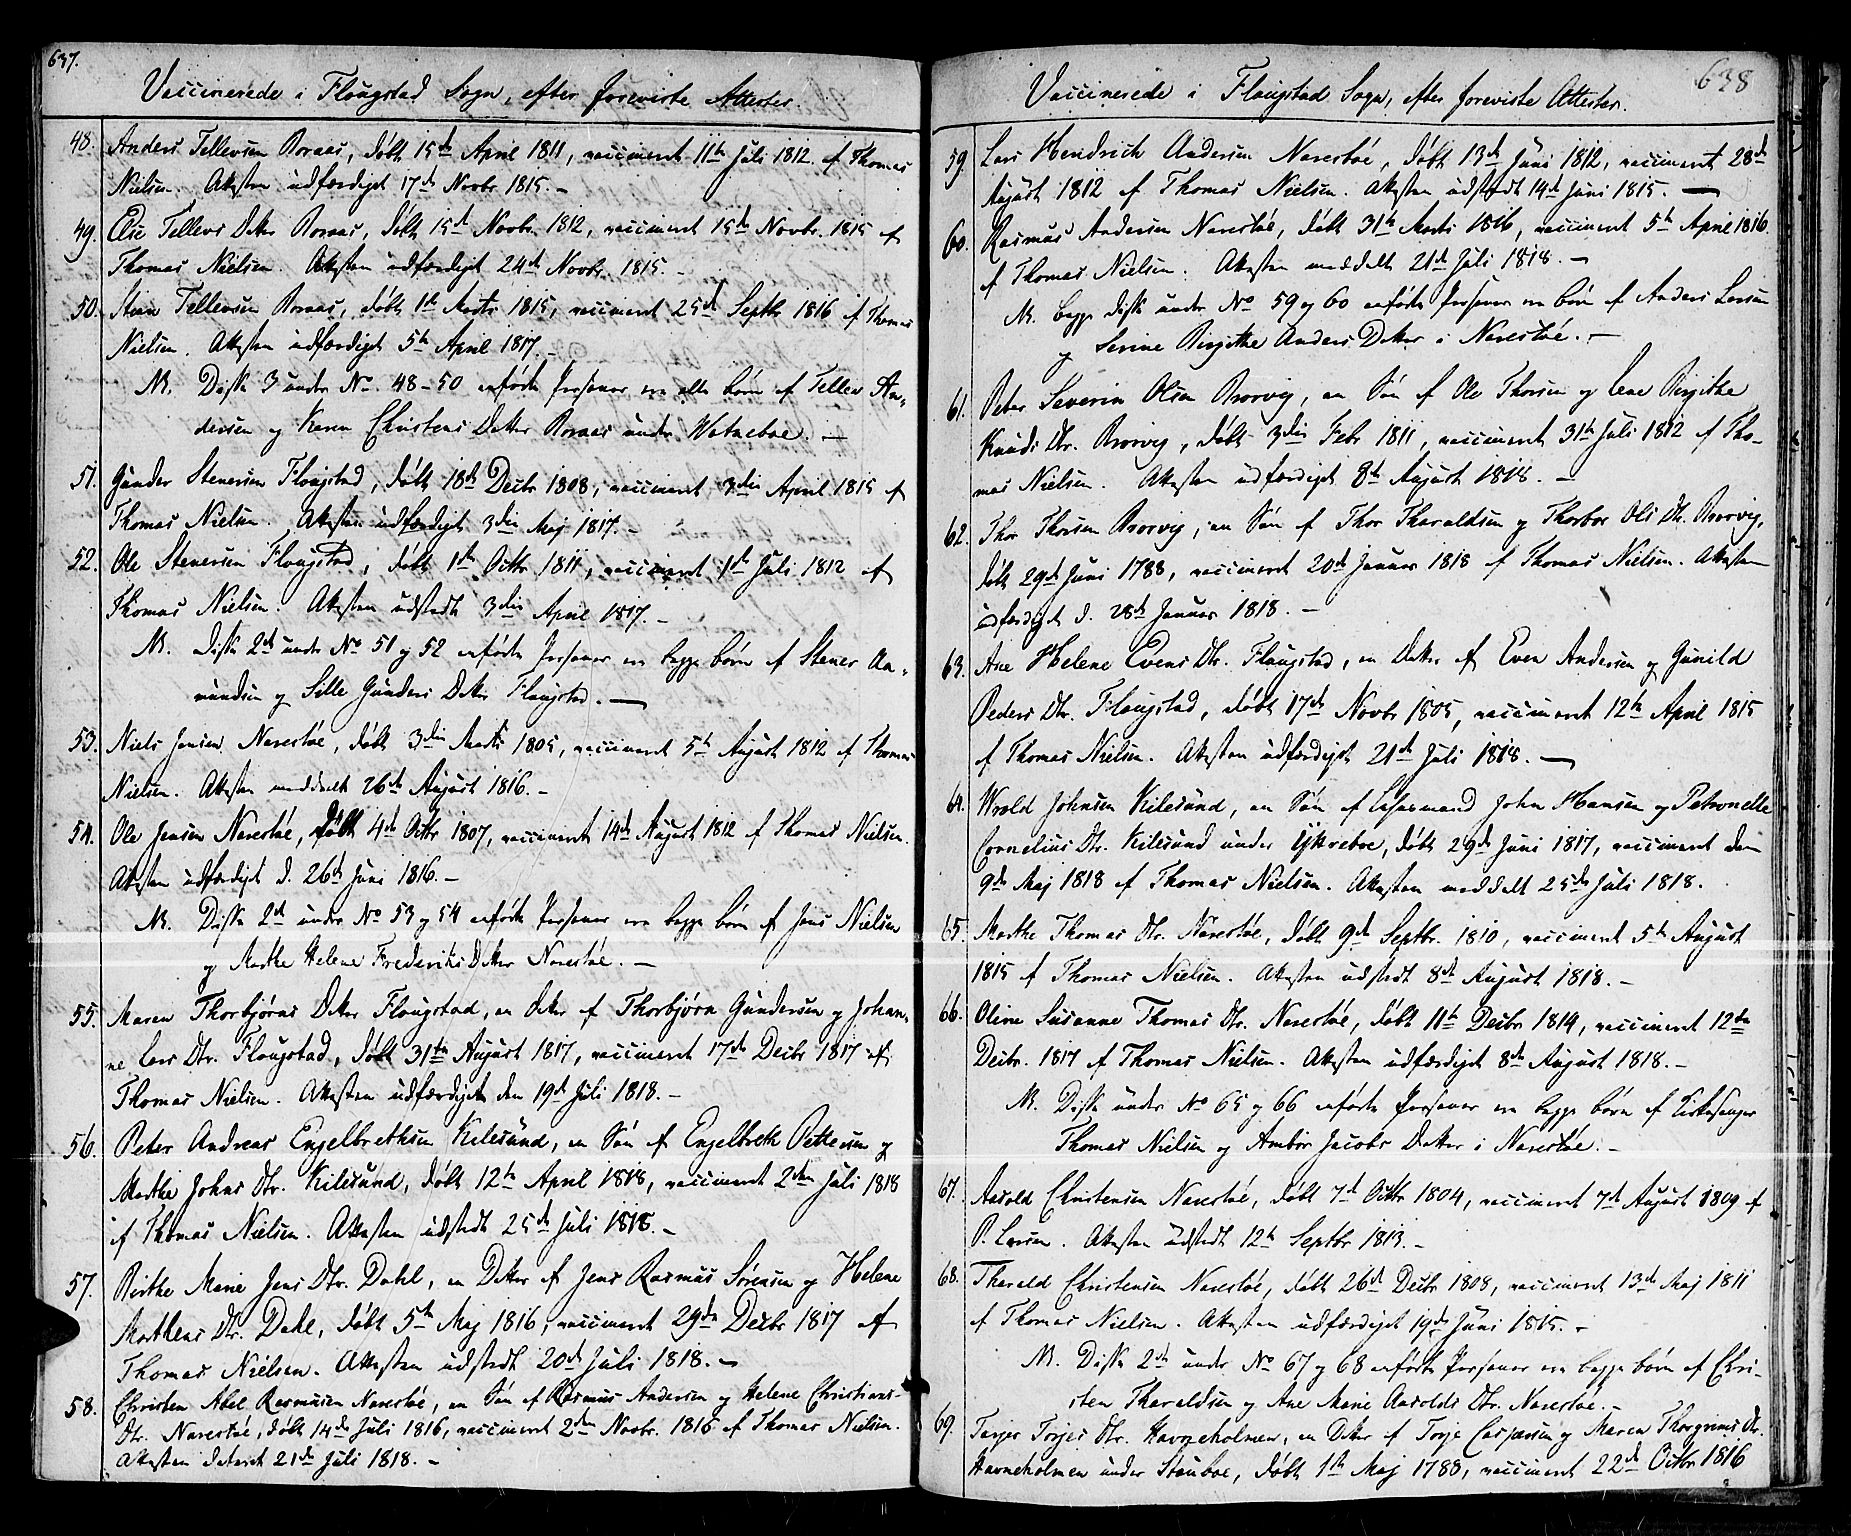 637.
Vaccinerede i Flougstad Sogn, efter foreviste Attester.
48. Anders Tellevsen Boraas, døbt 15de April 1811, vaccineret 11te Juli 1812 af Thomas
Nielsen. Attesten udfærdiget 17de Novbr 1815. –
49. Else Tellevs Datter Boraas, døbt 15de Novbr. 1812, vaccineret 15de Novbr. 1815 af
Thomas Nielsen. Attesten udfærdiget 24de Novbr. 1815. –
50. Stian Tellevsen Boraas, døbt 1ste Marts 1815, vaccineret 25de Septbr 1816 af Thomas
Nielsen. Attesten udfærdiget 5te April 1817. –
NB. Disse 3 under No. 48–50 anførte Personer ere alle børn af Tellev An-
dersen og Karen Christens Datter Boraas under Watneboe. –
51. Gunder Stenersen Flougstad, døbt 18de Decbr 1808, vaccineret 3die April 1815 af
Thomas Nielsen. Attesten udfærdiget 3die Maj 1817. –
52. Ole Stenersen Flougstad, døbt 1ste Octbr 1811, vaccineret 1ste Juli 1812 af
Thomas Nielsen. Attesten udstedt 3die April 1817. –
NB. Disse 2de under No 51 og 52 anførte Personer ere begge børn af Stener An-
mundsen og Sille Gunders Datter Flougstad. –
53. Niels Jensen Narestøe, døbt 3die Marts 1805, vaccineret 5te August 1812 af Thomas
Nielsen. Attesten meddeelt 26de August 1816. –
54. Ole Jensen Narestøe, døbt 4de Octbr 1807, vaccineret 14de August 1812 af Thomas Nielsen.
Attesten udfærdiget d. 26de Juni 1816. –
NB. Disse 2de under No 53 og 54 anførte Personer ere begge børn af Jens Nielsen
og Marthe Helene Frederiks Datter Narestøe. –
55. Maren Thorbjørns Datter Flougstad, en Datter af Thorbjørn Gundersen og Johan-
ne Lars Dtr. Flougstad, døbt 31te August 1817, vaccineret 17de Decbr 1817 af
Thomas Nielsen. Attesten udfærdiget den 19de Juli 1818. –
56. Peter Andreas Engelbrethsen Kilesund, en Søn af Engelbreth Pettersen og
Marthe Johns Dtr. Kilesund, døbt 12te April 1818, vaccineret 2den Juli 1818
af Thomas Nielsen. Attesten udstedt 25de Juli 1818. –
57. Birthe Marie Jens Dtr. Dahl, en Datter af Jens Rasmus Sørensen og Helene
Mathens Dtr. Dahl, døbt 5te Maj 1816, vaccineret 29de Decbr 1817 af
Thomas Nielsen. Attesten udstedt 20de Juli 1818. –
58. Christen Abel Rasmusen Narestøe, en Søn af Rasmus Andersen og Helene Christians
Dtr. Narestøe, døbt 14de Juli 1816, vaccineret 2den Novbr. 1816 af Thomas Nielsen.
Attesten dateret 21de Juli 1818. –
638
Vaccinerede i Flougstad Sogn, efter foreviste Attester.
59. Lars Hendrich Andersen Narestøe, døbt 13de Juni 1812, vaccineret 28de
August 1812 af Thomas Nielsen. Attesten udstedt 14de Juni 1815. –
60. Rasmus Andersen Narestøe, døbt 31te Marts 1816, vaccineret 5te April 1816.
af Thomas Nielsen. Attesten meddelt 21de Juli 1818. –
NB. begge disse under No 59 og 60 anførte Personer ere børn af Anders Larsen
og Serine Birgithe Anders Datter i Narestøe. –
61. Peter Severin Olsen Brorvig, en Søn af Ole Thorsen og Lene Birgithe
Knuds Dtr. Brorvig, døbt 3die Febr 1811, vaccineret 31te Juli 1812 af Tho-
mas Nielsen. Attesten udfærdiget 8de August 1818. –
62. Thor Thorsen Brorvig, en Søn af Thor Tharaldsen og Thorbor Ols Dtr. Brorvig,
døbt 29de Juni 1788, vaccineret 20de Januar 1818 af Thomas Nielsen. Attesten
udfærdiget d. 28de Januar 1818. –
63. Ane Helene Evens Dtr. Flougstad, en Datter af Even Andersen og Gunild
Peders Dtr. Flougstad, døbt 17de Novbr 1805, vaccineret 12te April 1815
af Thomas Nielsen. Attesten udfærdiget 21de Juli 1818. –
64. Wrold Johnsen Kilesund, en Søn af John Hansen og Petronelle
Cornelius Dtr. Kilesund under Ytreboe, døbt 29de Juni 1817, vaccineret den
9de Maj 1818 af Thomas Nielsen. Attesten meddelt 25de Juli 1818.
65. Marthe Thomas Dtr. Narestøe, døbt 9de Septbr. 1810, vaccineret 5te August
1815 af Thomas Nielsen. Attesten udstedt 8de August 1818. –
66. Oline Susanne Thomas Dtr. Narestøe, døbt 11te Decbr 1814, vaccineret 12te
Decbr. 1817 af Thomas Nielsen. Attesten udfærdiget 8de August 1818. –
NB. Disse under No 65 og 66 anførte Personer ere begge børn af Kirkesanger
Thomas Nielsen og Ambor Jacobs Datter i Narestøe. –
67. Aarold Christensen Narestøe, døbt 7de Octbr 1804, vaccineret 7de August 1809 af
P. Larsen. Attesten udstedt 12te Septbr 1813. –
68. Tharald Christensen Narestøe, døbt 26de Decbr 1808, vaccineret 13de Maj 1811
af Thomas Nielsen. Attesten udfærdiget 19de Juni 1815. –
NB. Disse 2de under No 67 og 68 anførte Personer ere begge børn af Chri-
sten Tharaldsen og Ane Marie Aarolds Dtr. Narestøe. –
69. Tarjer Torjes Dtr. Havneholmen, en Datter af Torje Caspersen og Maren Thorgrims Dtr.
Havneholmen under Stauboe, døbt 1ste Maj 1788, vaccineret 22de Octbr 1816